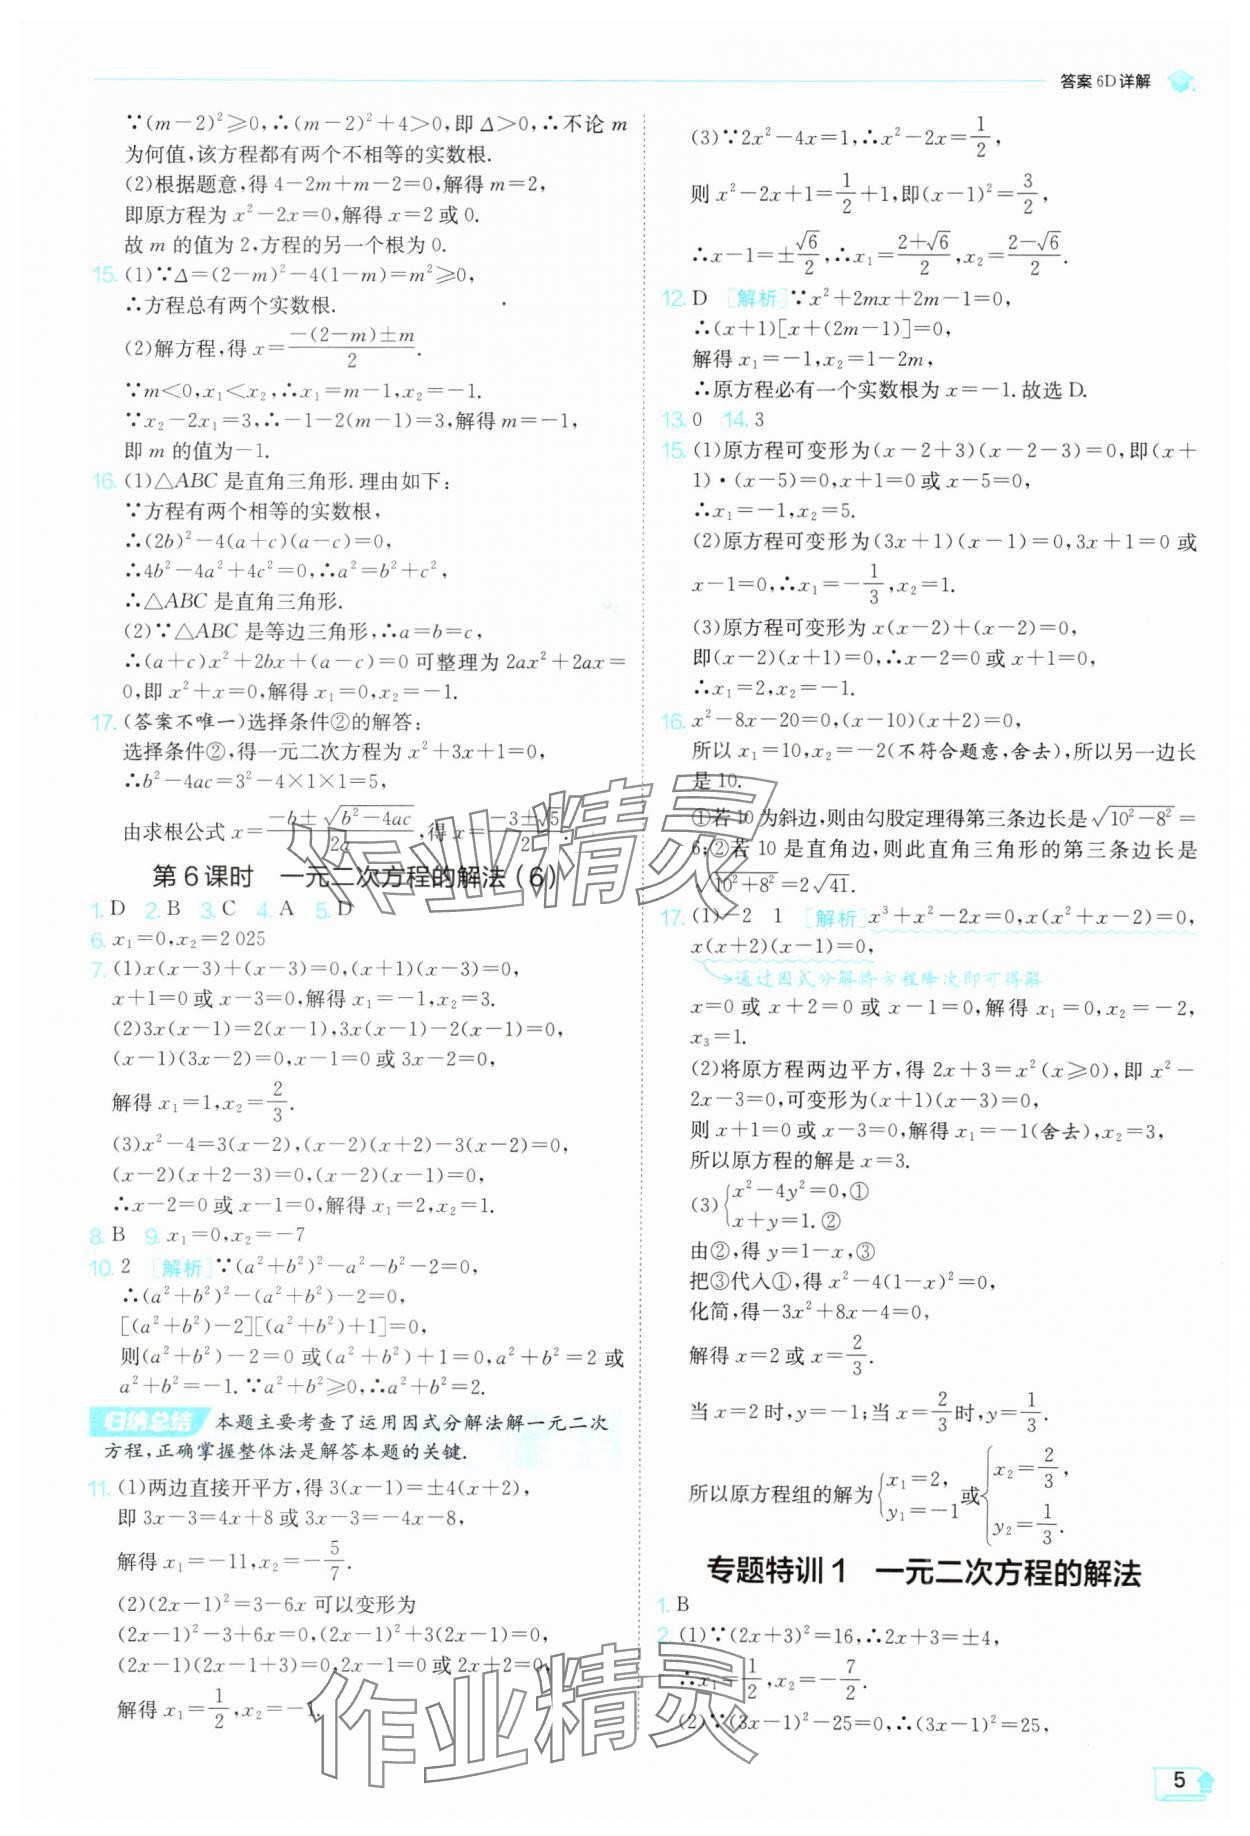 答案6D详解
∵(m-2)²≥0,∴(m-2)²+4>0,即Δ>0,∴不论m
为何值,该方程都有两个不相等的实数根.
(2)根据题意,得4-2m+m-2=0,解得m=2,
即原方程为x²-2x=0,解得x=2或0.
故m的值为2,方程的另一个根为0.
15. (1)∵Δ=(2-m)²-4(1-m)=m²≥0,
∴方程总有两个实数根.
(2)解方程,得x=\frac{-(2-m)±m}{2}.
∵m<0,x₁<x₂,∴x₁=m-1,x₂=-1.
∵x₂-2x₁=3,∴-1-2(m-1)=3,解得m=-1,
即m的值为-1.
16. (1)△ABC是直角三角形.理由如下:
∵方程有两个相等的实数根,
∴(2b)²-4(a+c)(a-c)=0,
∴4b²-4a²+4c²=0,∴a²=b²+c²,
∴△ABC是直角三角形.
(2)∵△ABC是等边三角形,∴a=b=c,
∴(a+c)x²+2bx+(a-c)=0可整理为2ax²+2ax=
0,即x²+x=0,解得x₁=0,x₂=-1.
17. (答案不唯一)选择条件②的解答:
选择条件②,得一元二次方程为x²+3x+1=0,
∴b²-4ac=3²-4×1×1=5,
由求根公式x=\frac{-b±\sqrt{b²-4ac}}{2a},得x=\frac{-3±\sqrt{5}}{2}.
第6课时 一元二次方程的解法(6)
1. D 2. B 3. C 4. A 5. D
6. x₁=0,x₂=2025
7. (1)x(x-3)+(x-3)=0,(x+1)(x-3)=0,
x+1=0或x-3=0,解得x₁=-1,x₂=3.
(2)3x(x-1)=2(x-1),3x(x-1)-2(x-1)=0,
(x-1)(3x-2)=0,x-1=0或3x-2=0,
解得x₁=1,x₂=\frac{2}{3}.
(3)x²-4=3(x-2),(x-2)(x+2)-3(x-2)=0,
(x-2)(x+2-3)=0,(x-2)(x-1)=0,
∴x-2=0或x-1=0,解得x₁=2,x₂=1.
8. B 9. x₁=0,x₂=-7
10. 2 [解析]∵(a²+b²)²-a²-b²-2=0,
∴(a²+b²)²-(a²+b²)-2=0,
[(a²+b²)-2][(a²+b²)+1]=0,
则(a²+b²)-2=0或(a²+b²)+1=0,a²+b²=2或
a²+b²=-1.∵a²+b²≥0,∴a²+b²=2.
归纳总结 本题主要考查了运用因式分解法解一元二次
方程,正确掌握整体法是解答本题的关键.
11. (1)两边直接开平方,得3(x-1)=±4(x+2),
即3x-3=4x+8或3x-3=-4x-8,
解得x₁=-11,x₂=-\frac{5}{7}.
(2)(2x-1)²=3-6x可以变形为
(2x-1)²-3+6x=0,(2x-1)²+3(2x-1)=0,
(2x-1)(2x-1+3)=0,2x-1=0或2x+2=0,
解得x₁=\frac{1}{2},x₂=-1.
(3)∵2x²-4x=1,∴x²-2x=\frac{1}{2},
则x²-2x+1=\frac{1}{2}+1,即(x-1)²=\frac{3}{2},
∴x-1=±\frac{\sqrt{6}}{2},∴x₁=\frac{2+\sqrt{6}}{2},x₂=\frac{2-\sqrt{6}}{2}.
12. D [解析]∵x²+2mx+2m-1=0,
∴(x+1)[x+(2m-1)]=0,
解得x₁=-1,x₂=1-2m,
∴原方程必有一个实数根为x=-1.故选D.
13. 0 14. 3
15. (1)原方程可变形为(x-2+3)(x-2-3)=0,即(x+
1)·(x-5)=0,x+1=0或x-5=0,
∴x₁=-1,x₂=5.
(2)原方程可变形为(3x+1)(x-1)=0,3x+1=0或
x-1=0,∴x₁=-\frac{1}{3},x₂=1.
(3)原方程可变形为x(x-2)+(x-2)=0,
即(x-2)(x+1)=0,∴x-2=0或x+1=0,
∴x₁=2,x₂=-1.
16. x²-8x-20=0,(x-10)(x+2)=0,
所以x₁=10,x₂=-2(不符合题意,舍去),所以另一边长
是10.
①若10为斜边,则由勾股定理得第三条边长是\sqrt{10²-8²}=
6;②若10是直角边,则此直角三角形的第三条边长是
\sqrt{10²+8²}=2\sqrt{41}.
17. (1)-2 1 [解析]x³+x²-2x=0,x(x²+x-2)=0,
x(x+2)(x-1)=0,
通过因式分解将方程降次即可得解
x=0或x+2=0或x-1=0,解得x₁=0,x₂=-2,
x₃=1.
(2)将原方程两边平方,得2x+3=x²(x≥0),即x²-
2x-3=0,可变形为(x+1)(x-3)=0,
则x+1=0或x-3=0,解得x₁=-1(舍去),x₂=3,
所以原方程的解是x=3.
(3){x²-4y²=0,①
x+y=1.②
由②,得y=1-x,③
把③代入①,得x²-4(1-x)²=0,
化简,得-3x²+8x-4=0,
解得x=2或x=\frac{2}{3}.
当x=2时,y=-1;当x=\frac{2}{3}时,y=\frac{1}{3},
所以原方程组的解为{x₁=2, y₁=-1或{x₂=\frac{2}{3}, y₂=\frac{1}{3}.
专题特训1 一元二次方程的解法
1. B
2. (1)∵(2x+3)²=16,∴2x+3=±4,
∴x₁=\frac{1}{2},x₂=-\frac{7}{2}.
(2)∵(3x-1)²-25=0,∴(3x-1)²=25,
5
作业精灵
作业精灵